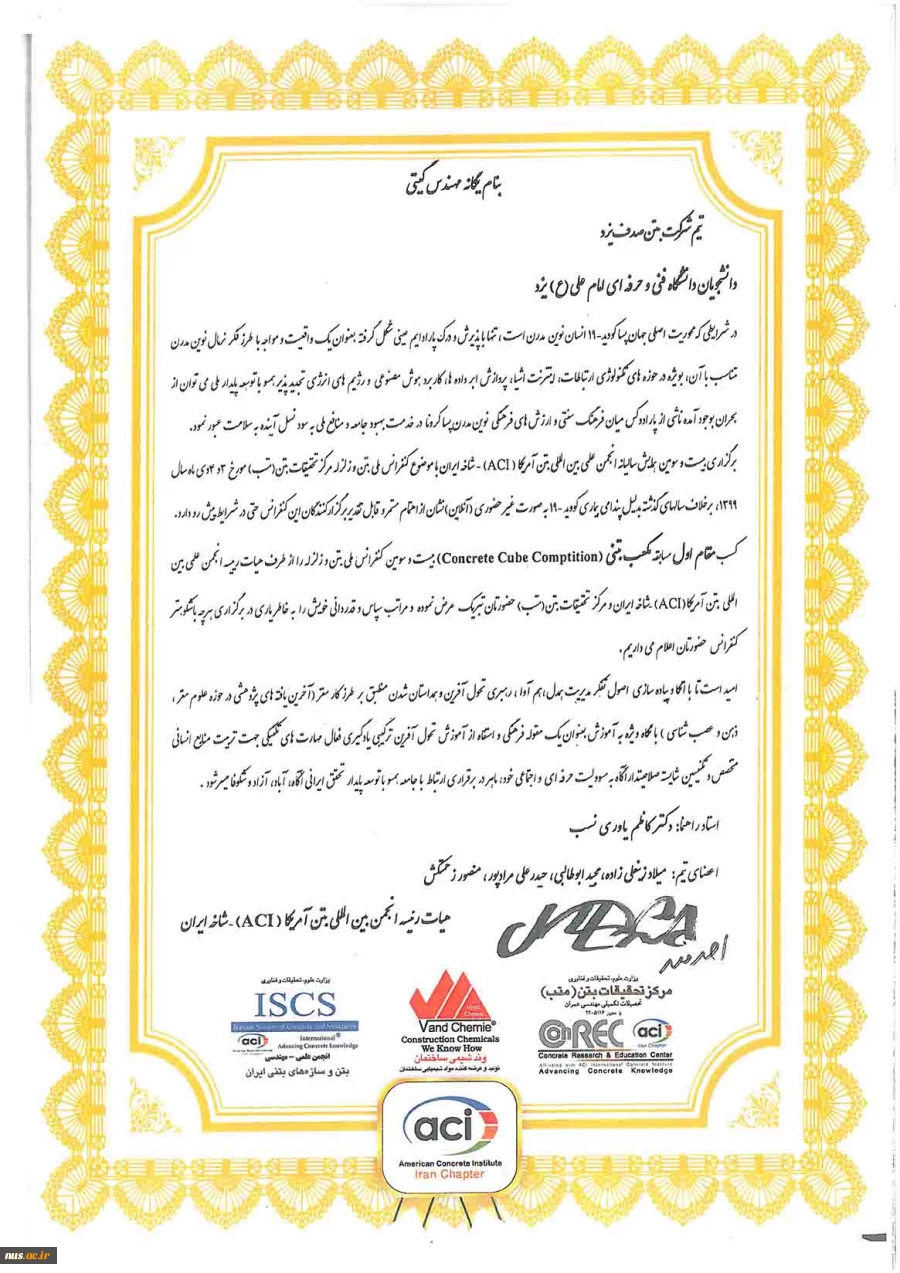 بنام یگانه مهندس گیتی
تیم شرکت بتن صدف یزد
دانشجویان دانشگاه فنی و حرفه ای امام علی (ع) یزد
در شرایطی که محوریت اصلی جهان پسا کووید-۱۹ انسان نوین مدرن است، تنها با پذیرش و درک پارادایم عینی شکل گرفته بعنوان یک واقعیت و مواجه با طرز فکر نرمال نوین مدرن
متناسب با آن، بویژه در حوزه های تکنولوژی ارتباطات، اینترنت اشیا، پردازش ابر داده ها، کاربرد هوش مصنوعی و رژیم های انرژی تجدید پذیر همسو با توسعه پایدار ملی می توان از
بحران بوجود آمده ناشی از پارادوکس میان فرهنگ سنتی و ارزش های فرهنگی نوین مدرن پسا کرونا در خدمت بهبود جامعه و منافع ملی به سود نسل آینده به سلامت عبور نمود.
برگزاری بیست و سومین همایش سالیانه انجمن علمی بین المللی بتن آمریکا (ACI) - شاخه ایران با موضوع کنفرانس ملی بتن و زلزله مرکز تحقیقات بتن (متب) مورخ ۳ و ۴ دی ماه سال
۱۳۹۹، برخلاف سالهای گذشته بدلیل پندامی بیماری کووید -۱۹ به صورت غیر حضوری (آنلاین) نشان از اهتمام مستمر و قابل تقدیر برگزارکنندگان این کنفرانس حتی در شرایط پیش رو دارد.
کسب مقام اول مسابقه مکعب بتنی (Concrete Cube Comptition) بیست و سومین کنفرانس ملی بتن و زلزله را از طرف هیات رییسه انجمن علمی بین
المللی بتن آمریکا (ACI) ـ شاخه ایران و مرکز تحقیقات بتن (متب) حضورتان تبریک عرض نموده و مراتب سپاس و قدردانی خویش را به خاطر یاری در برگزاری هرچه باشکوهتر
کنفرانس حضورتان اعلام می داریم.
امید است تا با اتکا و پیاده سازی اصول تفکر مدیریت همدل، هم آوا، رهبری تحول آفرین و همداستان شدن منطبق بر طرز کار مغز (آخرین یافته های پژوهشی در حوزه علوم مغز،
ذهن و عصب شناسی) با نگاه ویژه به آموزش بعنوان یک مقوله فرهنگی و استفاه از آموزش تحول آفرین ترکیبی یادگیری فعال مهارت های تکنیکی جهت تربیت منابع انسانی
متخصص و تکنیسین شایسته صلاحیتدار آگاه به مسوولیت حرفه ای و اجتماعی خود، ماهر در برقراری ارتباط با جامعه همسو با توسعه پایدار تحقق ایرانی آگاه، آباد، آزاد و شکوفا میسر شود.
استاد راهنما: دکتر کاظم یاوری نسب
اعضای تیم: میلاد زینعلی زاده، مجید ابوطالبی، حیدر علی مرادپور، منصور زحمتکش
هیات رئیسه انجمن بین المللی بتن آمریکا (ACI) ـ شاخه ایران
وزارت علوم، تحقیقات و فناوری
مرکز تحقیقات بتن (متب)
تحصیلات تکمیلی مهندسی عمران
ConREC
aci
Iran Chapter
Concrete Research & Education Center
Affiliated with ACI International Concrete Institute
Advancing Concrete Knowledge
Vand Chemie
Vand Chemie®
Construction Chemicals
We Know How
وند شیمی ساختمان
تولید و عرضه کننده مواد شیمیایی ساختمان
وزارت علوم، تحقیقات و فناوری
ISCS
Iranian Society of Concrete and Structures
aci International®
Advancing Concrete Knowledge
انجمن علمی - مهندسی
بتن و سازه‌های بتنی ایران
aci
American Concrete Institute
Iran Chapter
nus.ac.ir